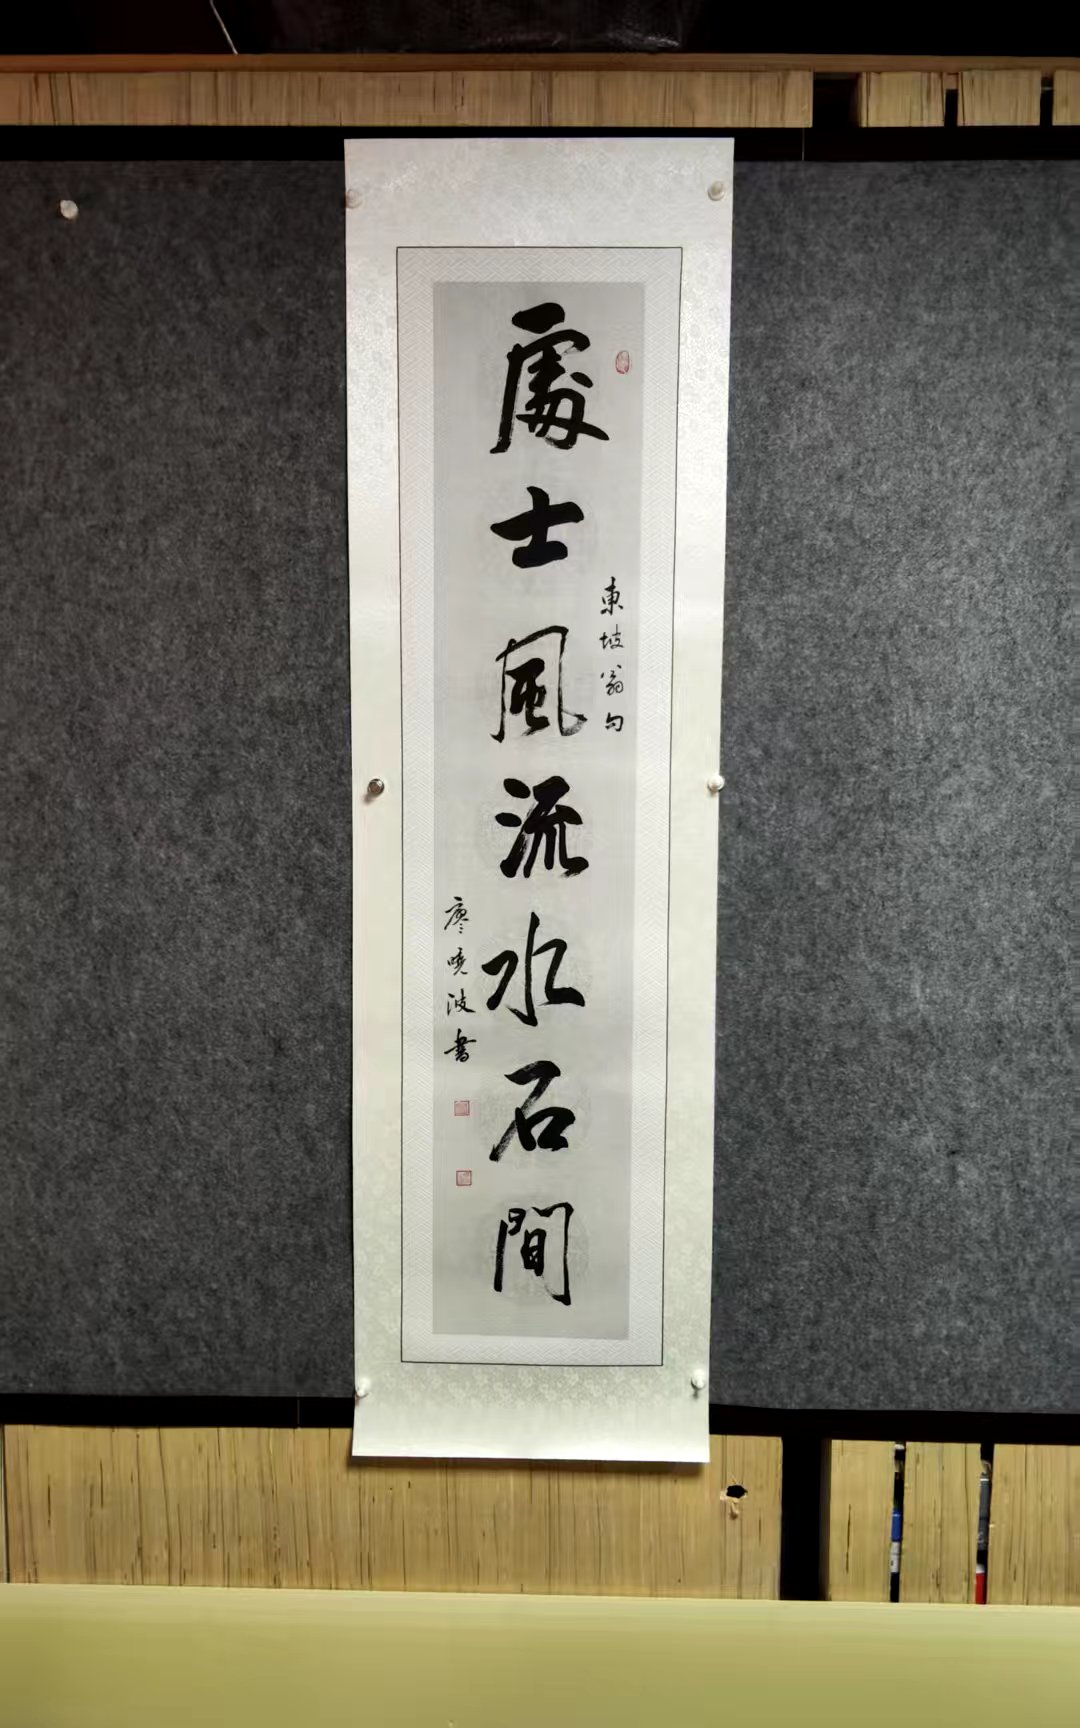 處士風流水石間
東坡翁句
廖曉波書